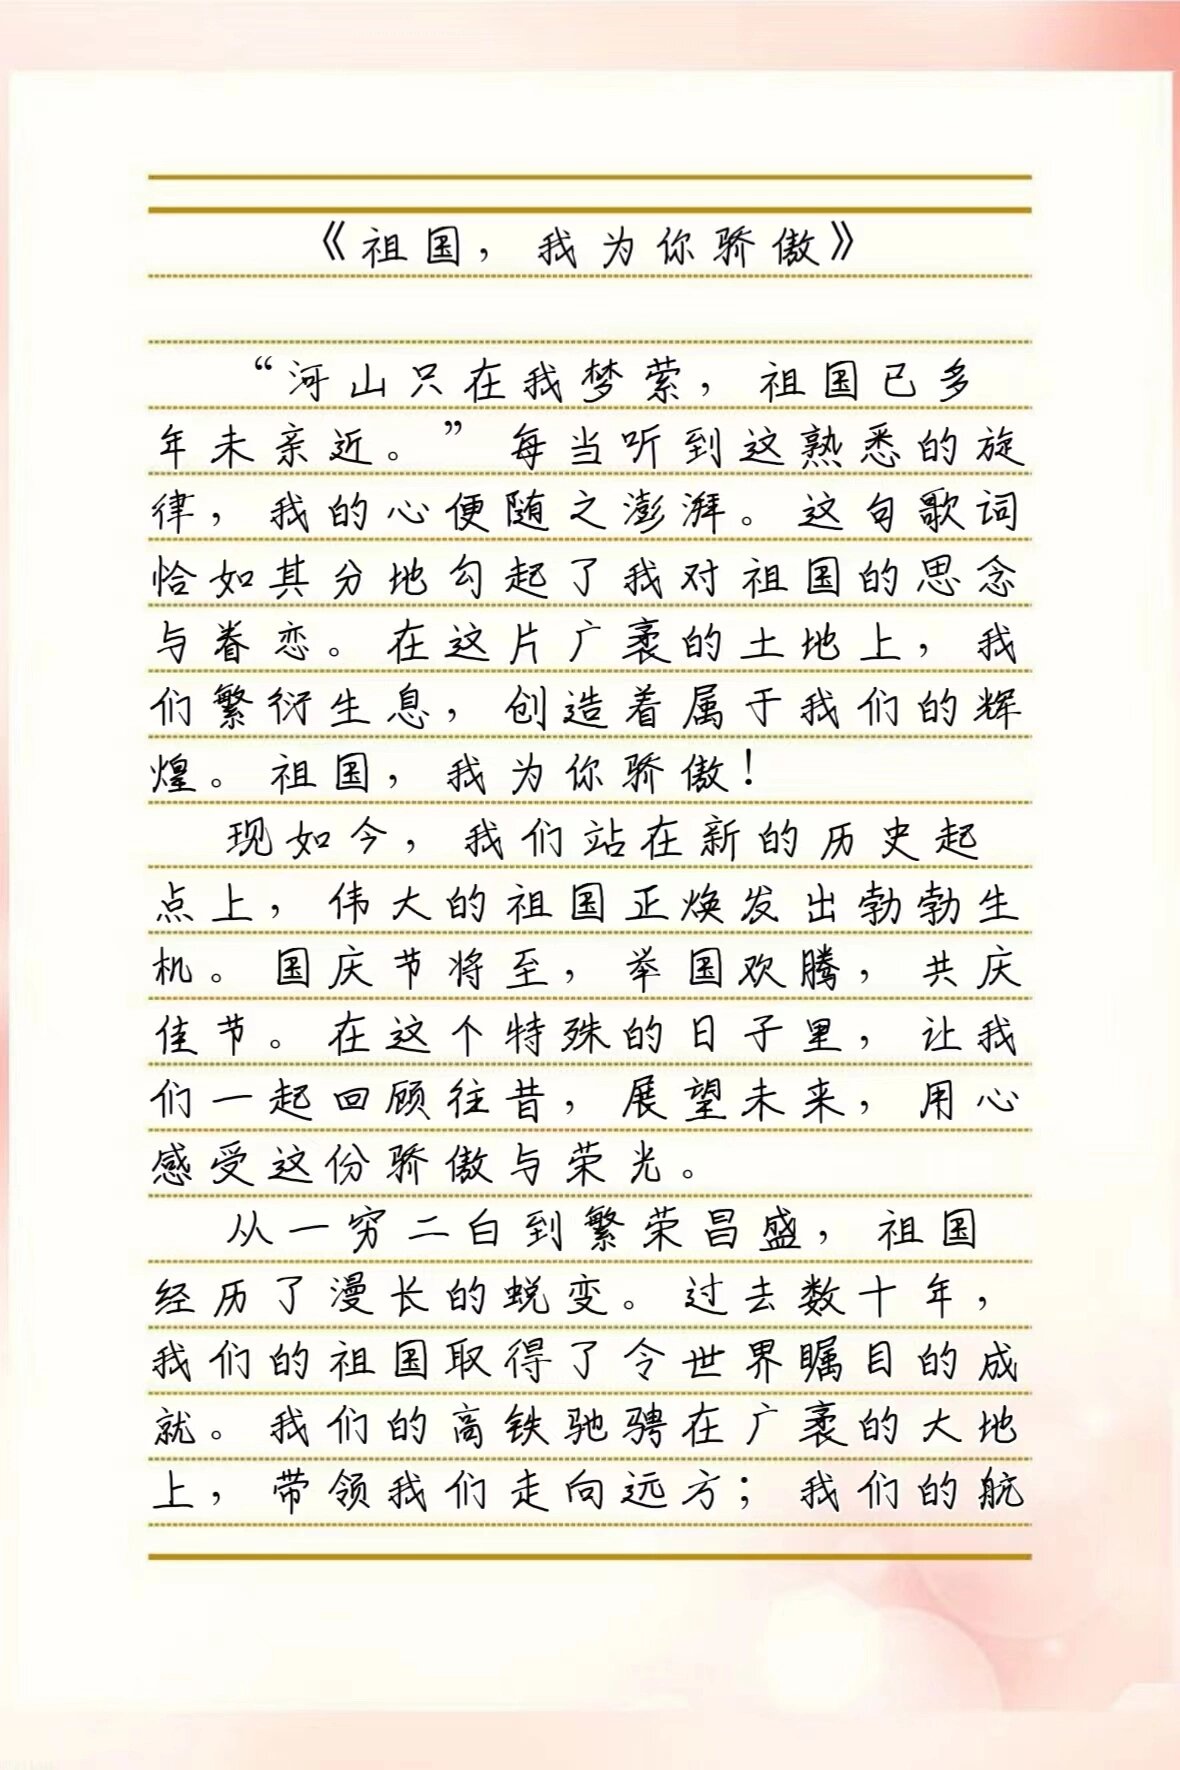 《祖国，我为你骄傲》
“河山只在我梦萦，祖国已多
年未亲近。”每当听到这熟悉的旋
律，我的心便随之澎湃。这句歌词
恰如其分地勾起了我对祖国的思念
与眷恋。在这片广袤的土地上，我
们繁衍生息，创造着属于我们的辉
煌。祖国，我为你骄傲！
现如今，我们站在新的历史起
点上，伟大的祖国正焕发出勃勃生
机。国庆节将至，举国欢腾，共庆
佳节。在这个特殊的日子里，让我
们一起回顾往昔，展望未来，用心
感受这份骄傲与荣光。
从一穷二白到繁荣昌盛，祖国
经历了漫长的蜕变。过去数十年，
我们的祖国取得了令世界瞩目的成
就。我们的高铁驰骋在广袤的大地
上，带领我们走向远方；我们的航